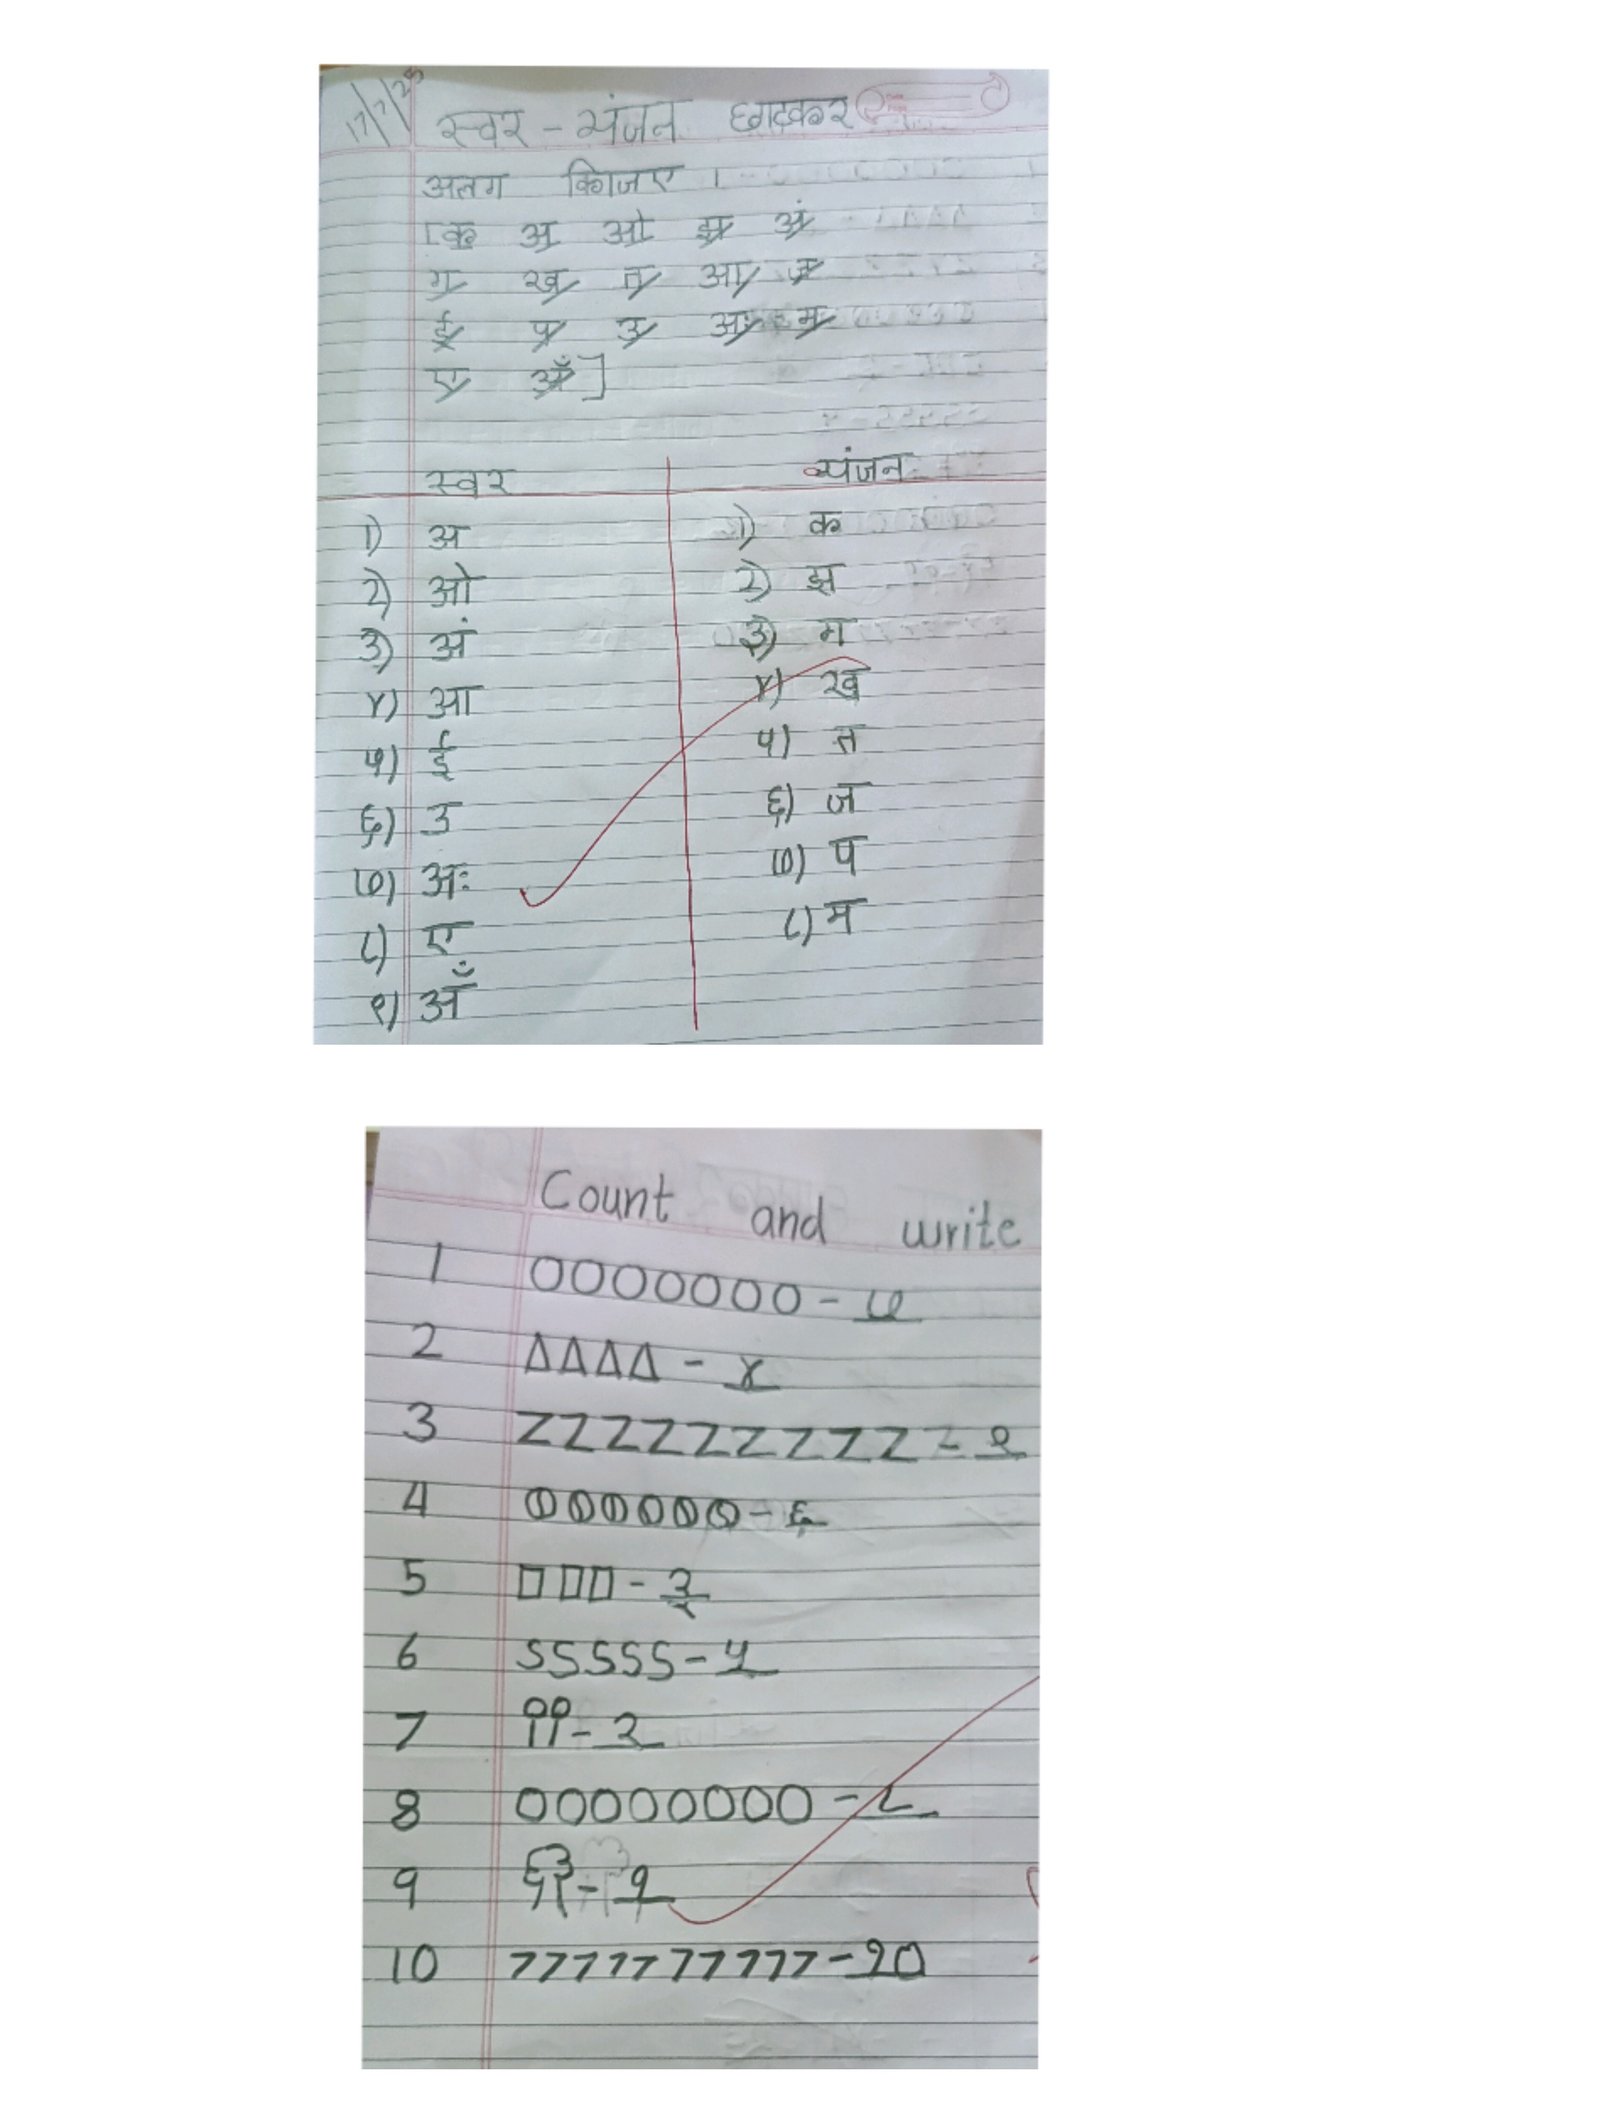 17/7/25
स्वर - व्यंजन छाटकर
अलग किजिए ।
[क अ ओ झ अं
ग ख त आ ज
ई प उ अः म
ए अँ]
स्वर व्यंजन
१) अ १) क
२) ओ २) झ
३) अं ३) ग
४) आ ४) ख
५) ई ५) त
६) उ ६) ज
७) अः ७) प
८) ए ८) म
९) अँ
Count and write
1 OOOOOOO - ७
2 ΔΔΔΔ - ४
3 ZZZZZZZZZ - ९
4 - ६
5 □□□ - ३
6 SSSSS - ५
7 - २
8 OOOOOOOO - ८
9 - १
10 7777777777 - १०